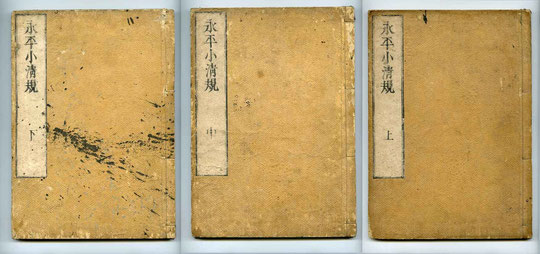 永平小清規 上
永平小清規 中
永平小清規 下